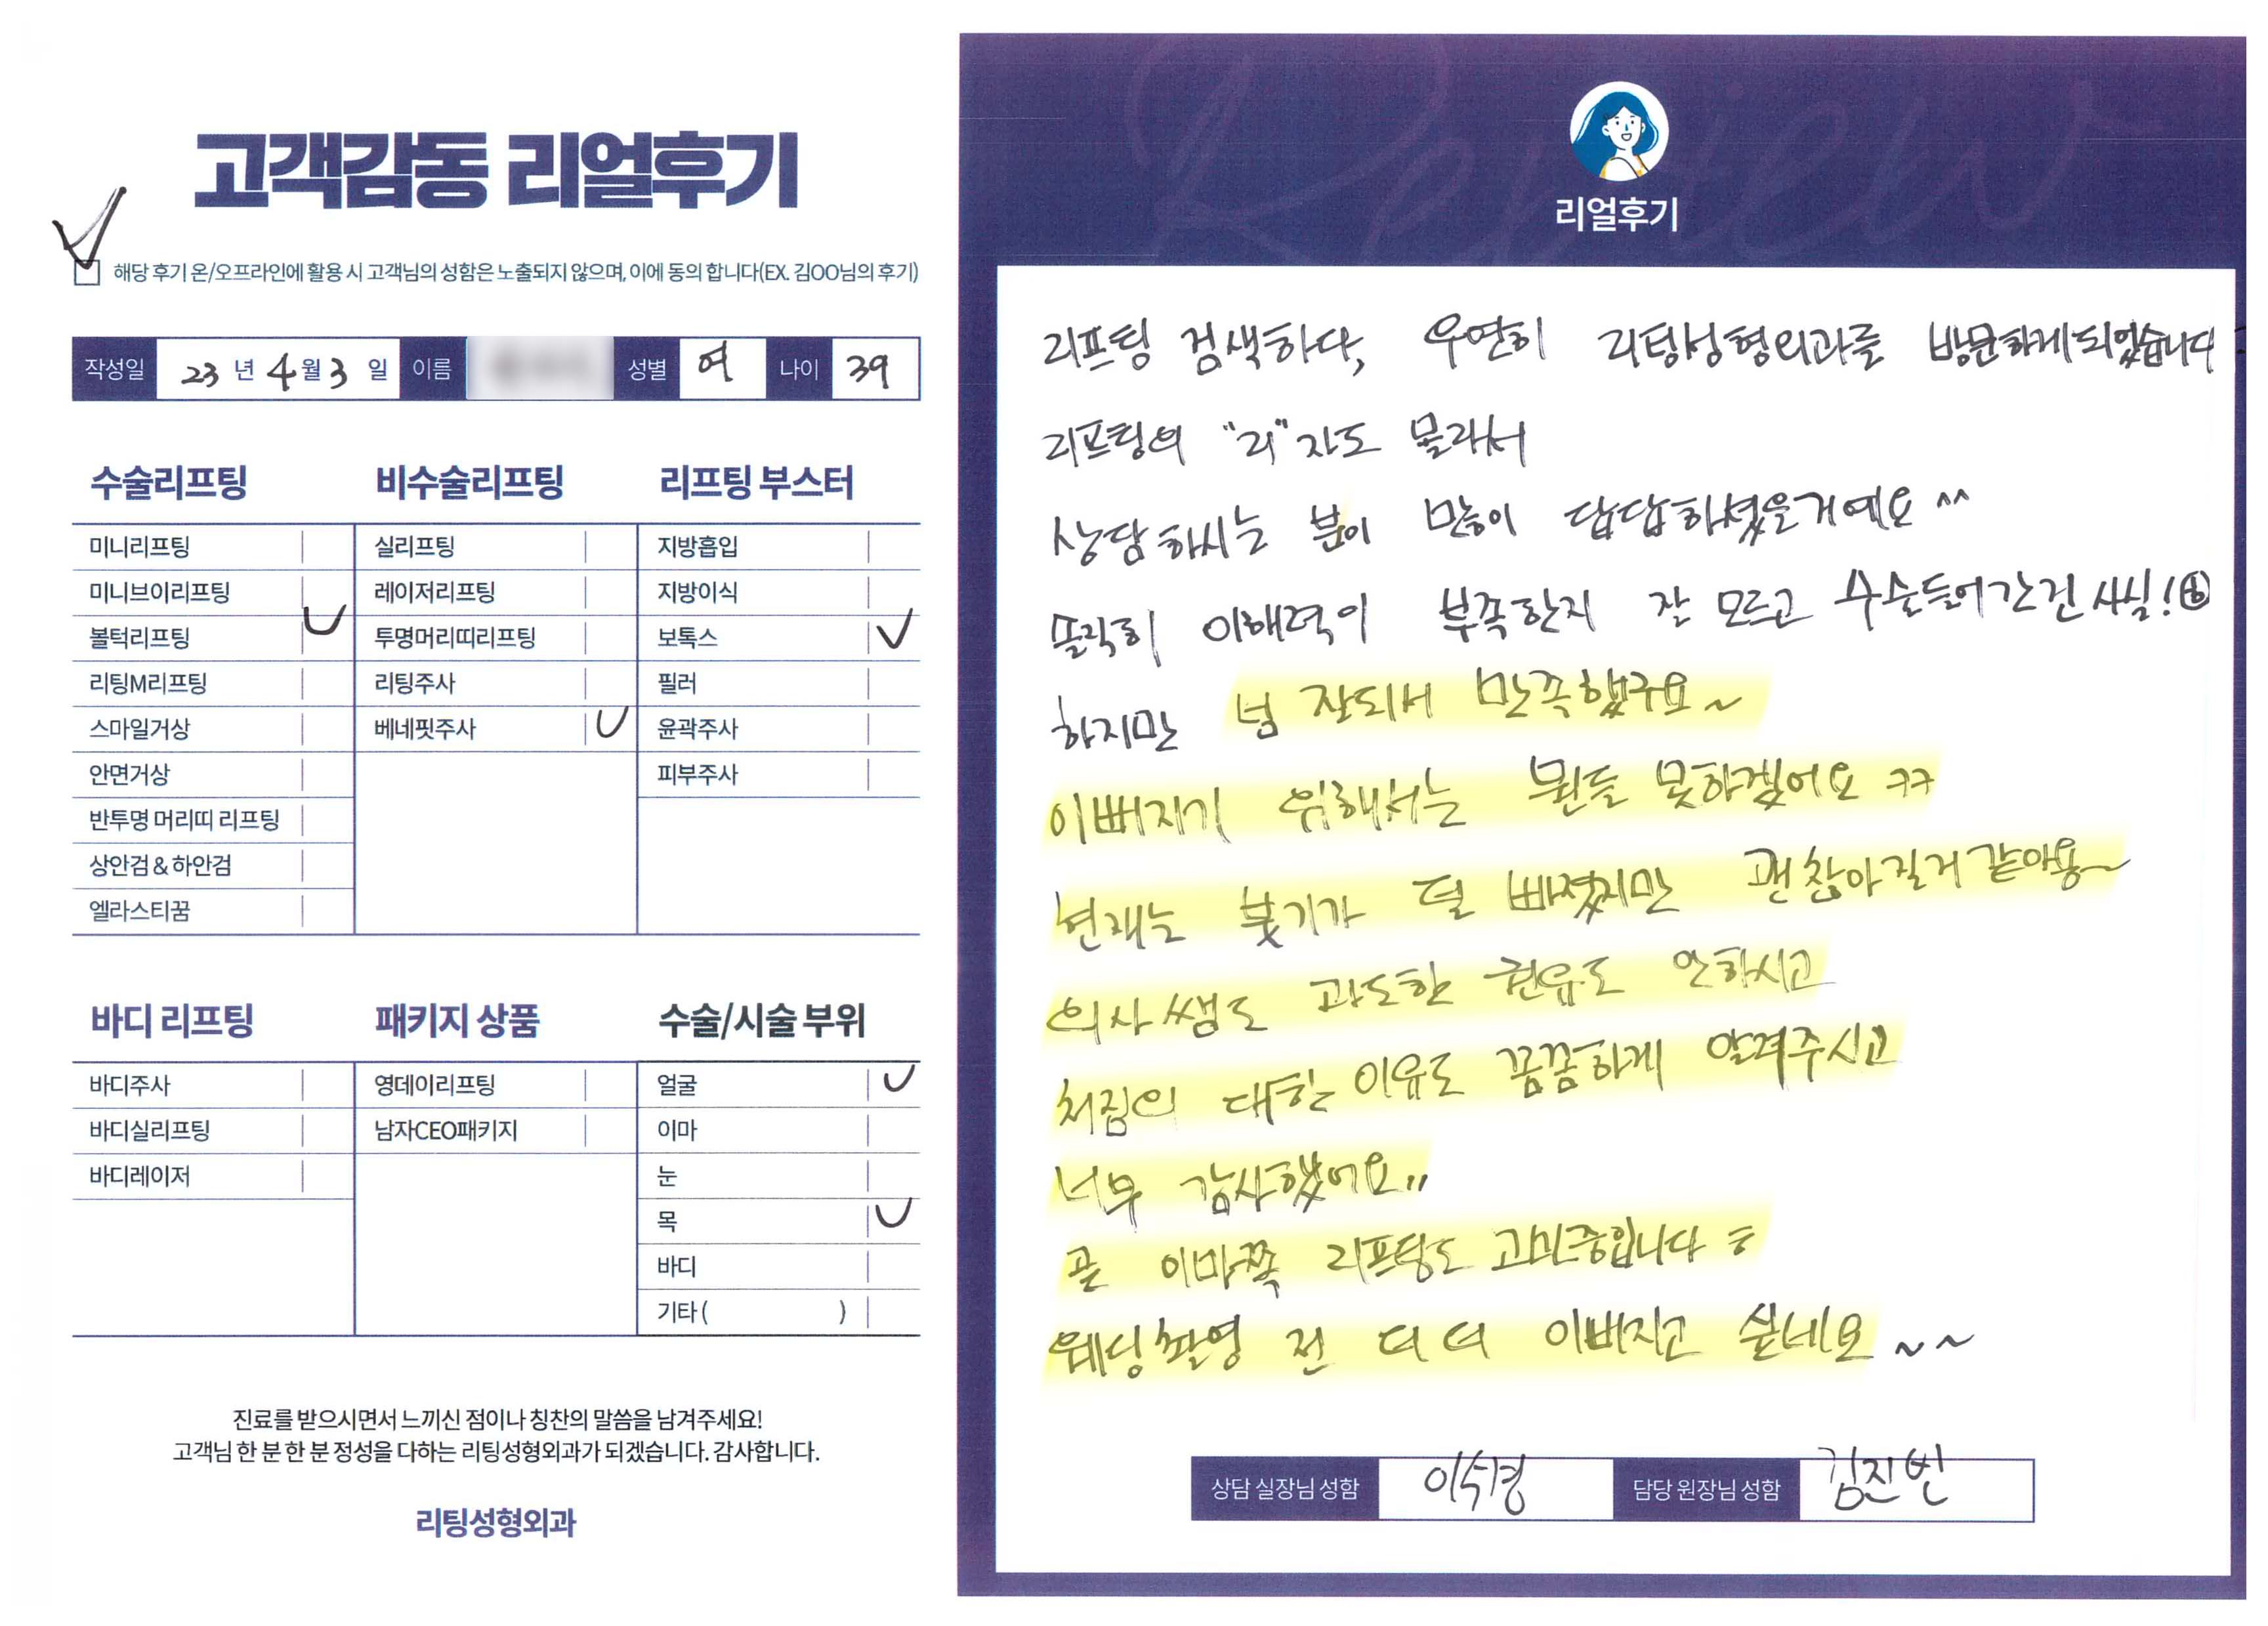 고객감동 리얼후기
해당 후기 온/오프라인에 활용 시 고객님의 성함은 노출되지 않으며, 이에 동의 합니다(EX. 김OO님의 후기)
작성일 23 년 4 월 3 일 이름 성별 여 나이 39
수술리프팅
미니리프팅
미니브이리프팅
볼턱리프팅
리팅M리프팅
스마일거상
안면거상
반투명 머리띠 리프팅
상안검 & 하안검
엘라스티꿈
비수술리프팅
실리프팅
레이저리프팅
투명머리띠리프팅
리팅주사
베네핏주사
리프팅 부스터
지방흡입
지방이식
보톡스
필러
윤곽주사
피부주사
바디 리프팅
바디주사
바디실리프팅
바디레이저
패키지 상품
영데이리프팅
남자CEO패키지
수술/시술 부위
얼굴
이마
눈
목
바디
기타 ( )
진료를 받으시면서 느끼신 점이나 칭찬의 말씀을 남겨주세요!
고객님 한 분 한 분 정성을 다하는 리팅성형외과가 되겠습니다. 감사합니다.
리팅성형외과
Review
리얼후기
리프팅 검색하다, 우연히 리팅성형외과를 방문하게되었습니다
리프팅의 "리"자도 몰라서
상담하시는 분이 많이 답답하셨을거예요 ^^
솔직히 이해력이 부족한지 잘 모르고 수술들어간건 사실!
하지만 넘 잘되서 만족했구요~
이뻐지기 위해서는 뭔들 못하겠어요 ㅋㅋ
현재는 붓기가 덜 빠졌지만 괜찮아질거 같아용~
의사쌤도 과도한 권유도 안하시고
처짐의 대한 이유도 꼼꼼하게 알려주시고
너무 감사했어요,,
곧 이마쪽 리프팅도 고민중입니다 ㅎ
웨딩촬영 전 더 더 이뻐지고 싶네요 ~~
상담 실장님 성함 이수경 담당 원장님 성함 김진빈